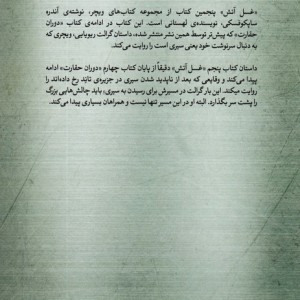 «غسل آتش» پنجمین کتاب از مجموعه کتاب‌های ویچر، نوشته‌ی آندره
ساپکوفسکی، نویسنده‌ی لهستانی است. این کتاب در ادامه‌ی کتاب «دوران
حقارت» که پیش‌تر توسط همین نشر منتشر شده، داستان گرالت ریویایی، ویچری که
به دنبال سرنوشت خود یعنی سیری است را روایت می‌کند.
داستان کتاب پنجم «غسل آتش» دقیقاً از پایان کتاب چهارم «دوران حقارت» ادامه
پیدا می‌کند و وقایعی که بعد از ناپدید شدن سیری در جزیره‌ی تاند رخ داده‌اند را
روایت میکند. این بار گرالت در مسیرش برای رسیدن به سیری، باید چالش‌هایی بزرگ
را پشت سر بگذارد. البته او در این مسیر تنها نیست و همراهان بسیاری پیدا می‌کند.